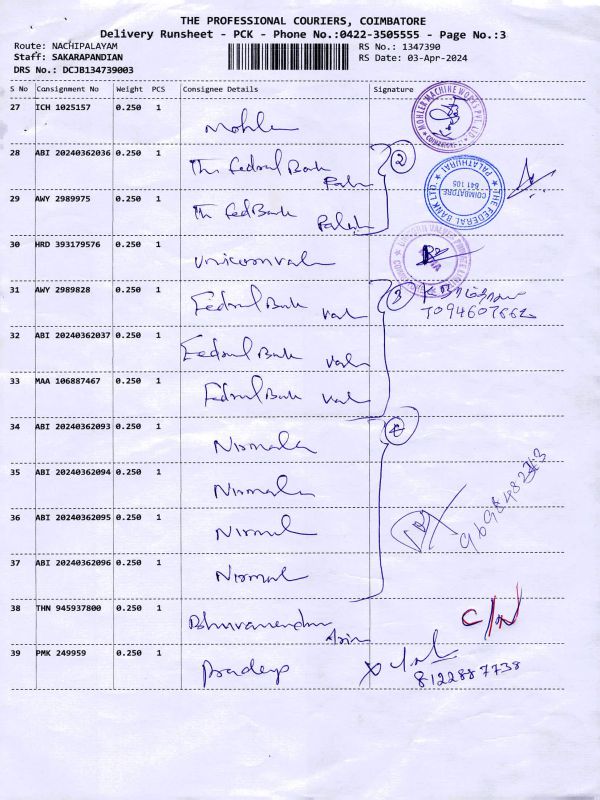 THE PROFESSIONAL COURIERS, COIMBATORE
Delivery Runsheet - PCK - Phone No.:0422-3505555 - Page No.:3
Route: NACHIPALAYAM RS No.: 1347390
Staff: SAKARAPANDIAN RS Date: 03-Apr-2024
DRS No.: DCJB134739003
S No Consignment No Weight PCS Consignee Details Signature
27 ICH 1025157 0.250 1 Mohler
MOHLER MACHINE WORKS PVT. LTD. COIMBATORE
28 ABI 20240362036 0.250 1 The Fedral Bank
2
THE FEDERAL BANK LTD. PALATHURAI
COIMBATORE
641 105
29 AWY 2989975 0.250 1 Th Fed Bank
30 HRD 393179576 0.250 1 Unicornvalv
31 AWY 2989828 0.250 1 Fedral Bank
3
32 ABI 20240362037 0.250 1 Fedral Bank
33 MAA 106887467 0.250 1 Fedral Bank
34 ABI 20240362093 0.250 1 Nirmala
35 ABI 20240362094 0.250 1 Nirmala
36 ABI 20240362095 0.250 1 Nirmal
37 ABI 20240362096 0.250 1 Nirmal
38 THN 945937800 0.250 1
39 PMK 249959 0.250 1 Pradeep
8122887738